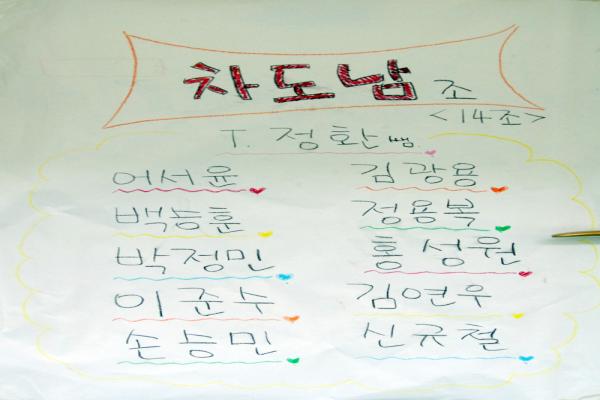 차도남 조
<14조>
T. 정환쌤.
어서윤 김광용
백능훈 정용복
박정민 홍성원
이준수 김연우
손승민 신규철